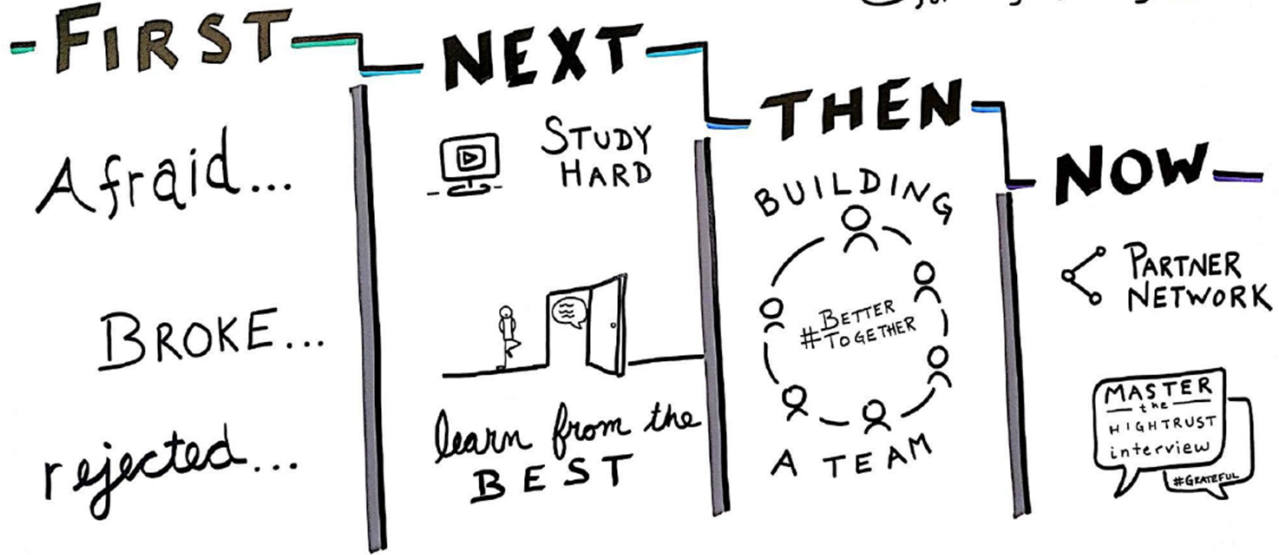 FIRST
Afraid...
BROKE...
rejected...
NEXT
STUDY
HARD
learn from the
BEST
THEN
BUILDING
#BETTER
TOGETHER
A TEAM
NOW
PARTNER
NETWORK
MASTER
the
HIGHTRUST
interview
#GRATEFUL